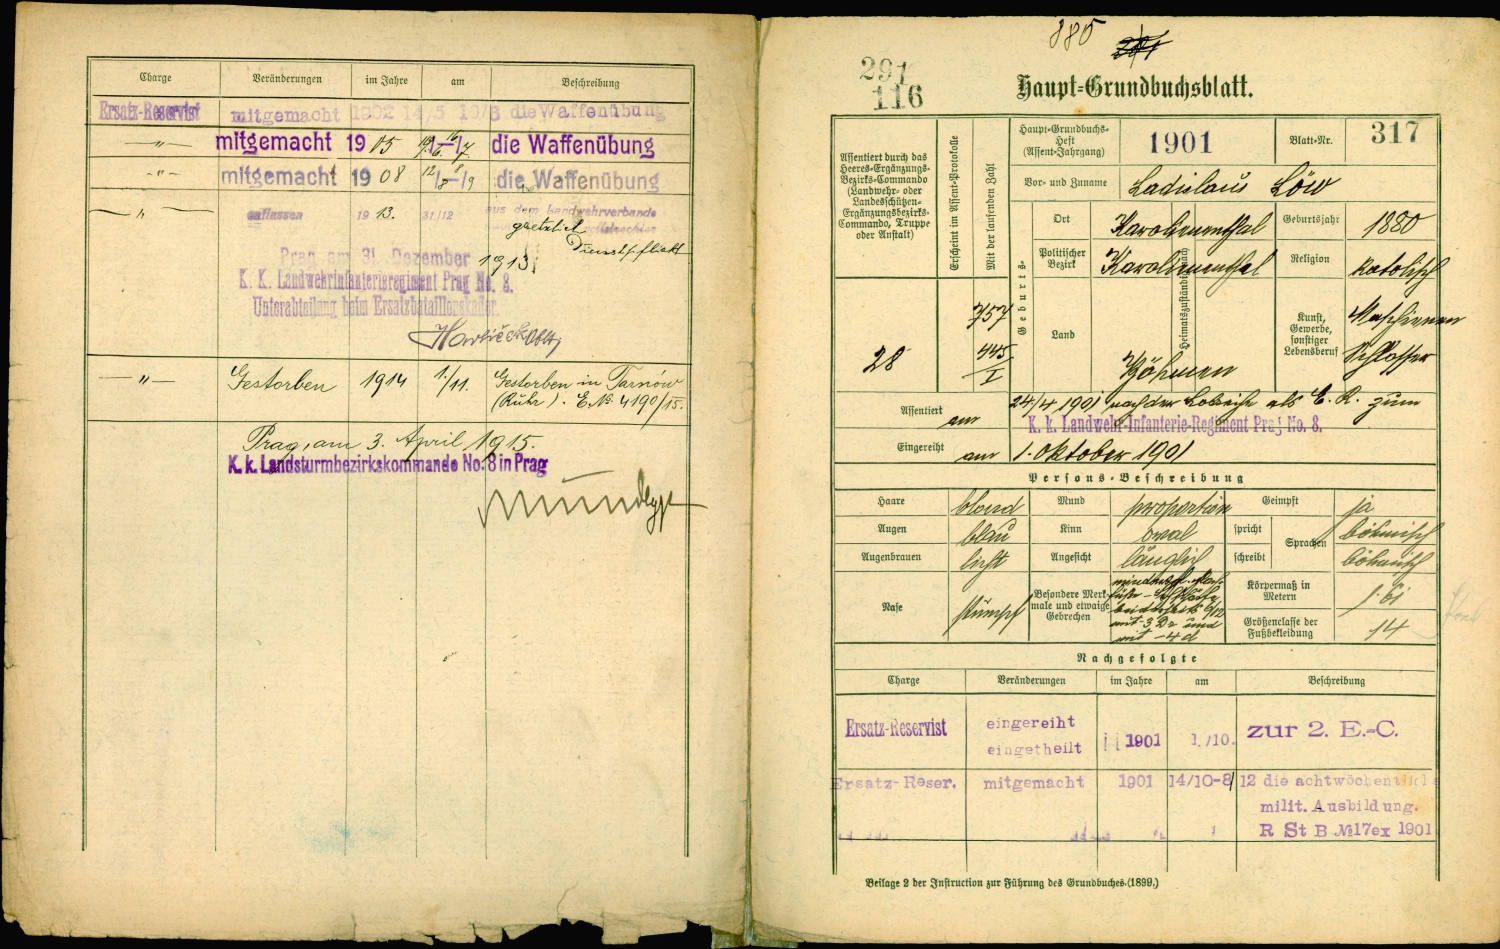 Charge Veränderungen im Jahre am Beschreibung
Ersatz-Reservist mitgemacht 1902 14/5 10/8 die Waffenübung
—〃— mitgemacht 1905 die Waffenübung
-〃- mitgemacht 1908 12/8—8/9 die Waffenübung
—〃— entlassen 1913. 31/12 aus dem Landwehrverbande
gesetzlich
Dienstpflicht
Prag am 31. Dezember 1913
K. K. Landwehrinfanterieregiment Prag No. 8.
Unterabteilung beim Ersatzbataillonskader.
—〃— Gestorben 1914 1./11. Gestorben in Tarnów
(Ruhr). E. No. 4190/15.
Prag, am 3. April 1915.
K. k. Landsturmbezirkskommando No. 8 in Prag
885
291
116
Haupt-Grundbuchsblatt.
Assentiert durch das
Heeres-Ergänzungs-
Bezirks-Commando
(Landwehr- oder
Landesschützen-
Ergänzungsbezirks-
Commando, Truppe
oder Anstalt)
28
Erscheint im Assent-Protokolle
Mit der laufenden Zahl
757
445/I
Haupt-Grundbuchs-
Heft
(Assent-Jahrgang)
1901
Blatt-Nr.
317
Vor- und Zuname Ladislaus Löw
Geburts-
Heimatszuständig nach
Ort Karolinenthal
Geburtsjahr 1880
Politischer
Bezirk
Karolinenthal
Religion katolisch
Land Böhmen
Kunst,
Gewerbe,
sonstiger
Lebensberuf
Maschienen
Schlosser
Assentiert am 24/4 1901 nach der Losreihe als E. R. zum
K. k. Landwehr-Infanterie-Regiment Prag No. 8.
Eingereiht am 1. Oktober 1901
Persons-Beschreibung
Haare blond Mund proportion Geimpft ja
Augen blau Kinn oval spricht Sprachen böhmisch
Augenbrauen licht Angesicht länglich schreibt böhmisch
Nase stumpf
Besondere Merk-
male und etwaige
Gebrechen
Körpermaß in
Metern
1·61
Größenclasse der
Fußbekleidung
14
Nachgefolgte
Charge Veränderungen im Jahre am Beschreibung
Ersatz-Reservist eingereiht
eingetheilt 1901 1./10. zur 2. E.-C.
Ersatz-Reser. mitgemacht 1901 14/10-8/12 die achtwöchentliche
milit. Ausbildung.
R St B №17ex 1901
Beilage 2 der Instruction zur Führung des Grundbuches. (1899.)